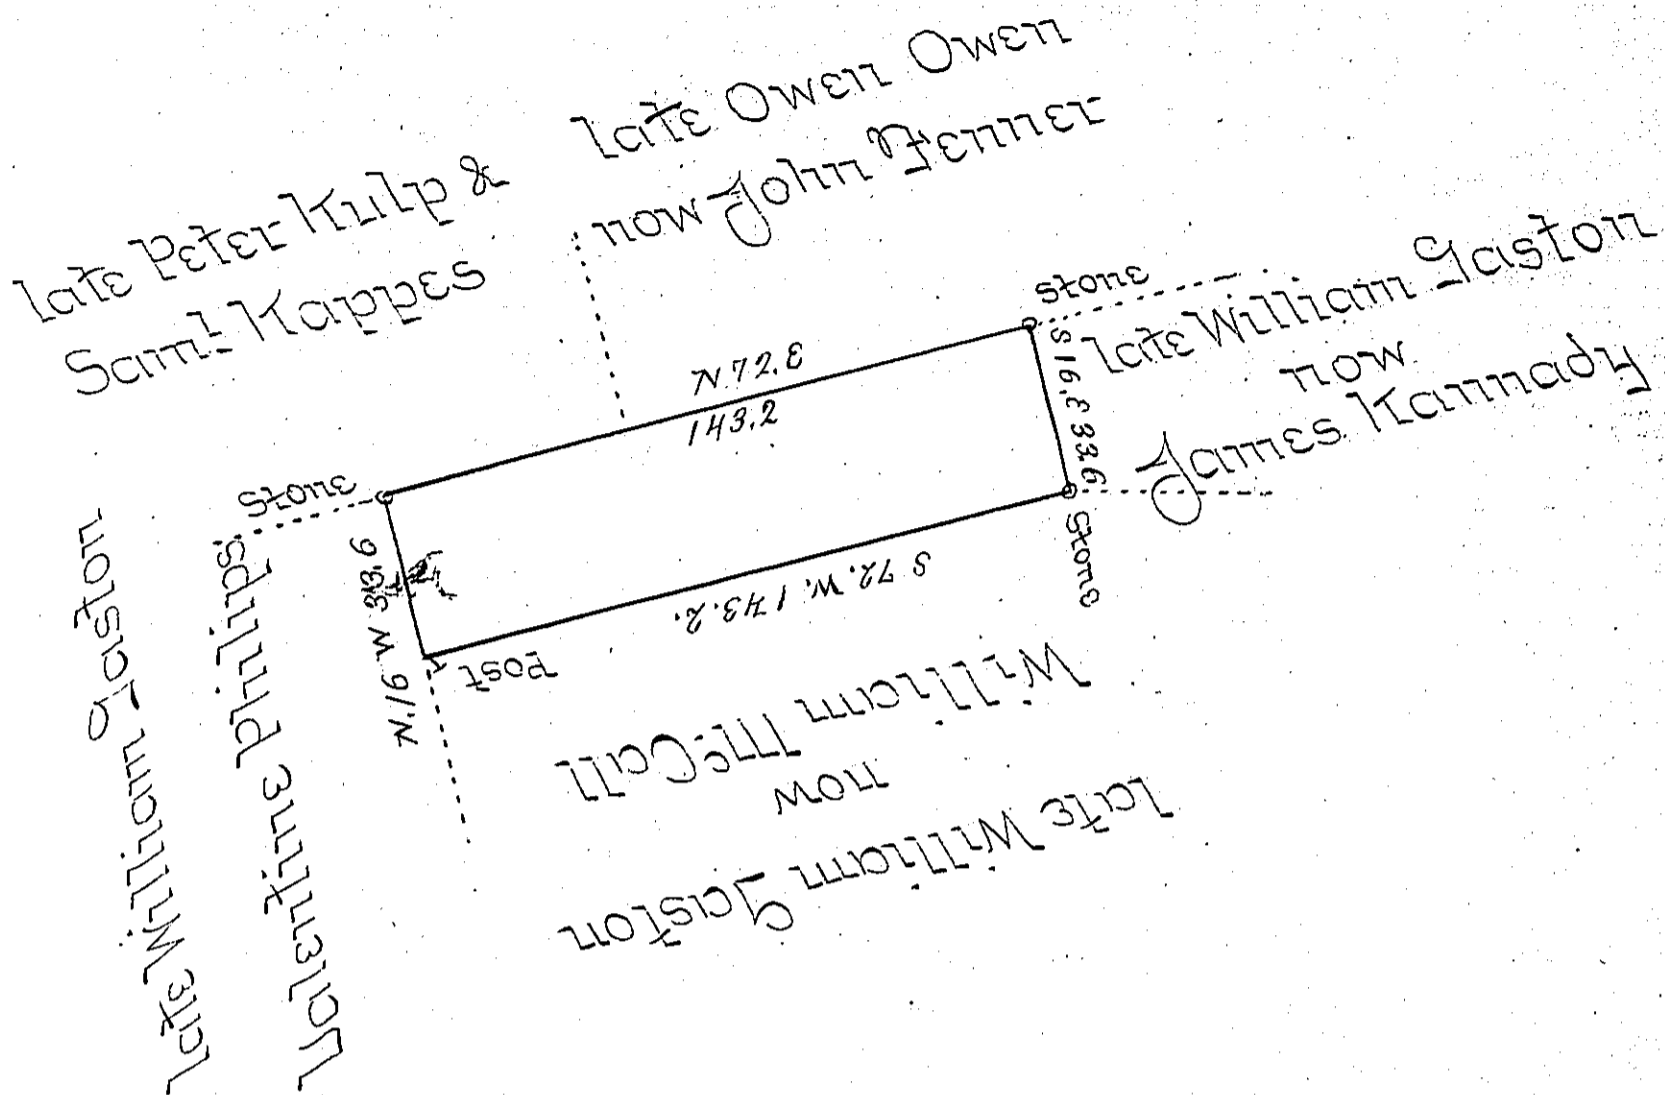 late Peter Kulp &
Saml Kappes
late Owen Owen
now John Fenner
Stone
late William Gaston
now
James Kannady
S 16. E 33.6
Stone
N 72. E
143.2
Stone
N. 16 W 33.6
Post
S 72. W. 143.2.
late William Gaston
now
William McCall
late William Gaston
Valentine Philips